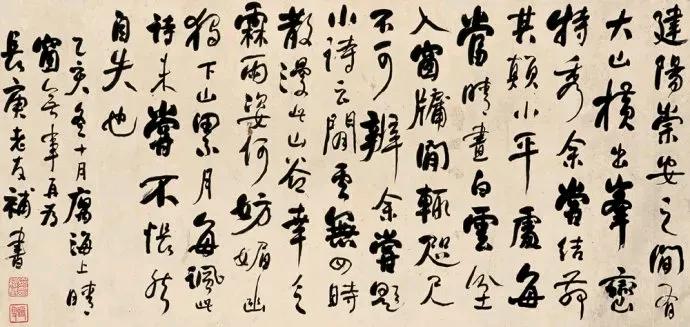 建陽崇安之間有
大山橫出峯巒
特秀余嘗結茆
其顛小平處每
當晴晝白雲坌
入窗牖間輒咫尺
不可辨余嘗題
小詩云閒雲無四時
散漫此山谷幸乏
霖雨姿何妨媚幽
獨下山累月每諷此
詩未嘗不悵然
自失也
乙亥冬十月寓海上晴
窗無事再為
長庚老友補書